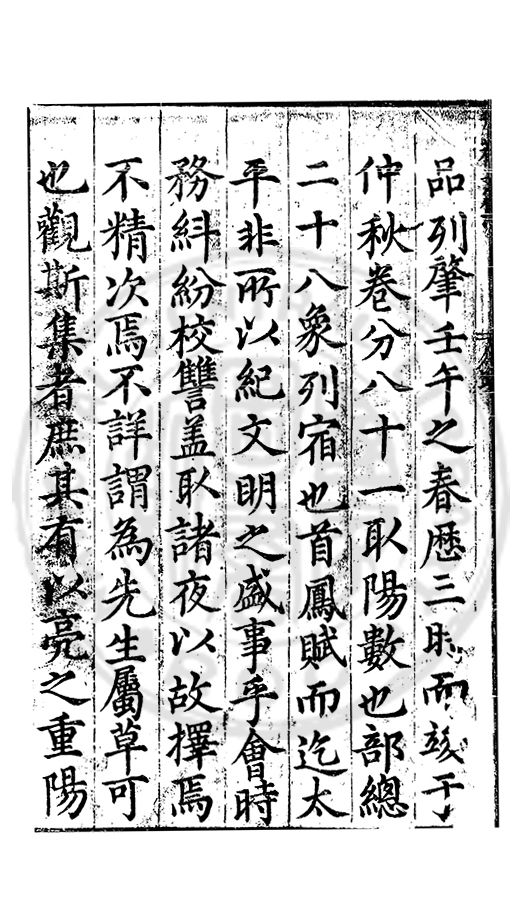 品列肇壬午之春厯三時而竣于
仲秋卷分八十一取陽數也部總
二十八象列宿也首鳳賦而迄太
平非所以紀文明之盛事乎會時
務糾紛校讐盖取諸夜以故擇焉
不精次焉不詳謂為先生屬草可
也觀斯集者庶其有以亮之重陽